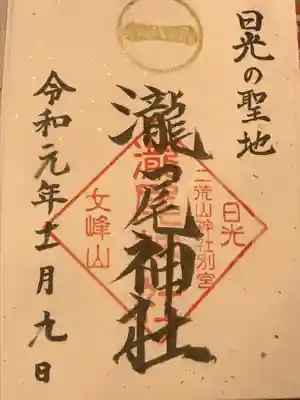 日光の聖地
一
瀧尾神社
二荒山神社別宮
日光
女峰山
令和元年十一月九日